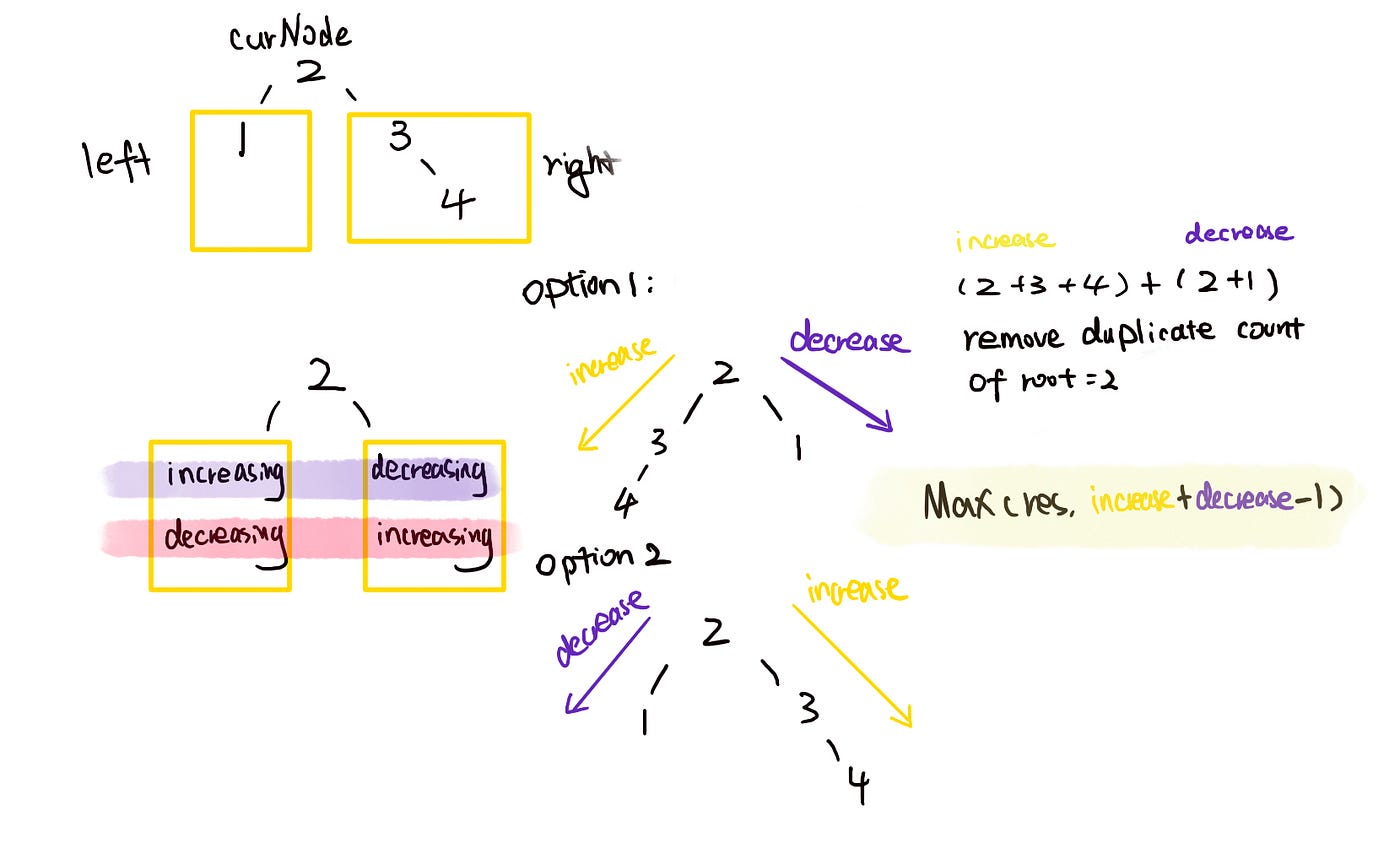 curNode
2
1
3
4
left
right
2
increasing decreasing
decreasing increasing
option 1:
increase
decrease
2
3
1
4
option 2
decrease
increase
2
1
3
4
increase decrease
(2+3+4)+(2+1)
remove duplicate count
of root=2
Max(res, increase+decrease-1)